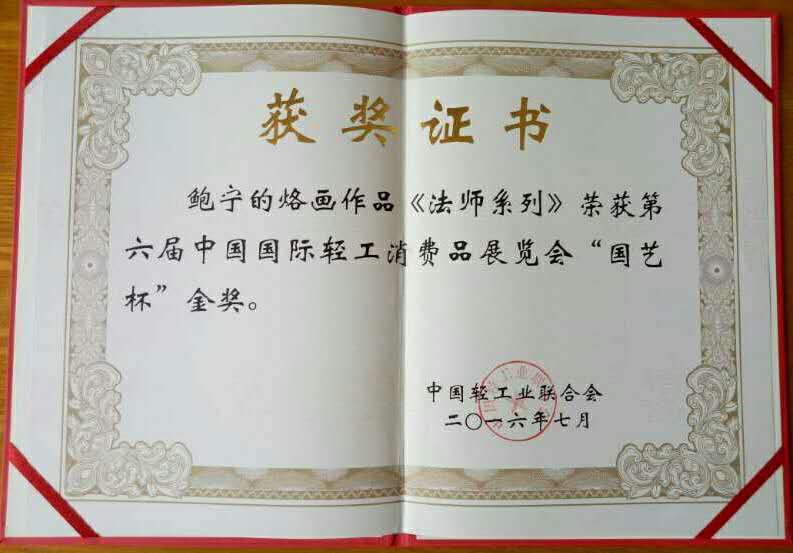 获奖证书
鲍宁的烙画作品《法师系列》荣获第
六届中国国际轻工消费品展览会“国艺
杯”金奖。
中国轻工业联合会
二〇一六年七月